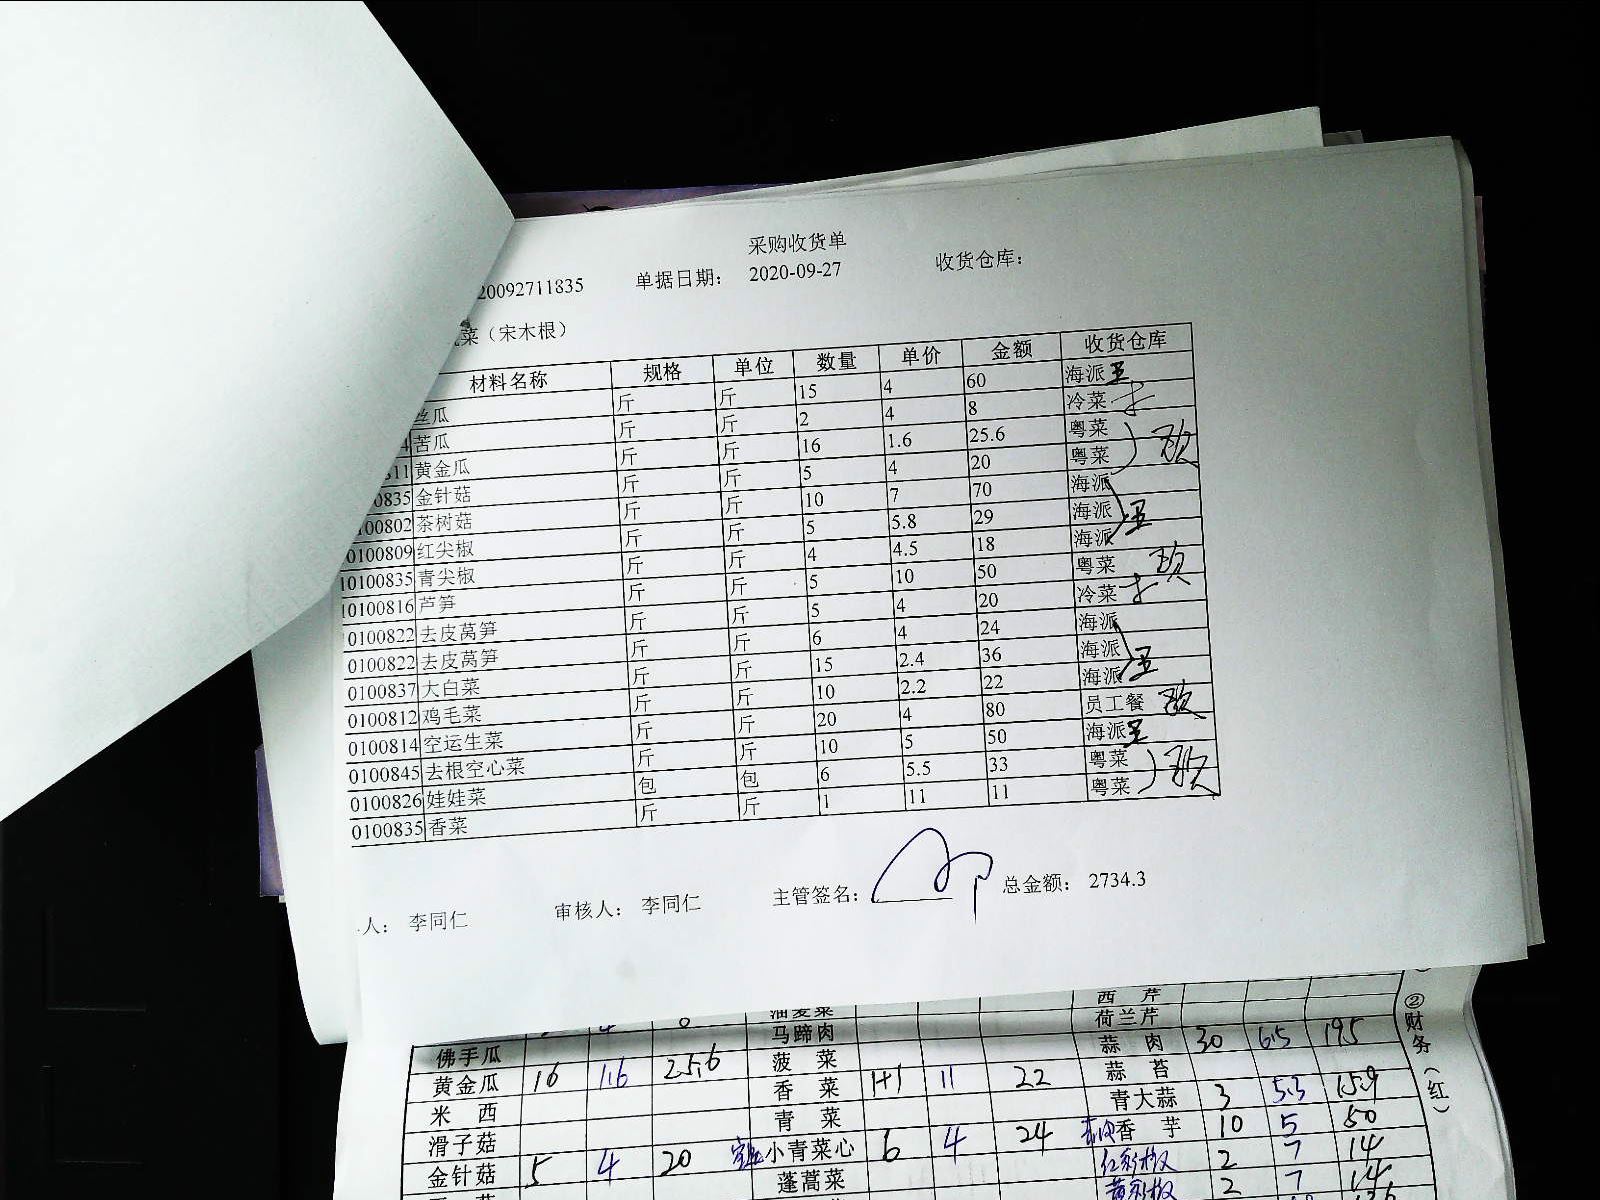 采购收货单
20092711835 单据日期: 2020-09-27 收货仓库:
菜（宋木根）
材料名称 规格 单位 数量 单价 金额 收货仓库
丝瓜 斤 斤 15 4 60 海派 王
4 苦瓜 斤 斤 2 4 8 冷菜
811 黄金瓜 斤 斤 16 1.6 25.6 粤菜
0835 金针菇 斤 斤 5 4 20 粤菜
100802 茶树菇 斤 斤 10 7 70 海派
0100809 红尖椒 斤 斤 5 5.8 29 海派
10100835 青尖椒 斤 斤 4 4.5 18 海派
10100816 芦笋 斤 斤 5 10 50 粤菜
0100822 去皮莴笋 斤 斤 5 4 20 冷菜
0100822 去皮莴笋 斤 斤 6 4 24 海派
0100837 大白菜 斤 斤 15 2.4 36 海派
0100812 鸡毛菜 斤 斤 10 2.2 22 海派
0100814 空运生菜 斤 斤 20 4 80 员工餐
0100845 去根空心菜 斤 斤 10 5 50 海派 王
0100826 娃娃菜 包 包 6 5.5 33 粤菜
0100835 香菜 斤 斤 1 11 11 粤菜
人: 李同仁 审核人: 李同仁 主管签名: 总金额: 2734.3
油麦菜 西芹
佛手瓜 马蹄肉 荷兰芹
黄金瓜 16 1.6 25.6 菠菜 蒜肉 30 6.5 195
米西 香菜 1+1 11 22 蒜苔
滑子菇 青菜 青大蒜 3 5.3 15.9
金针菇 5 4 20 小青菜心 6 4 24 香芋 10 5 50
蓬蒿菜 红彩椒 2 7 14
黄彩椒 2 7 14
②财务（红）